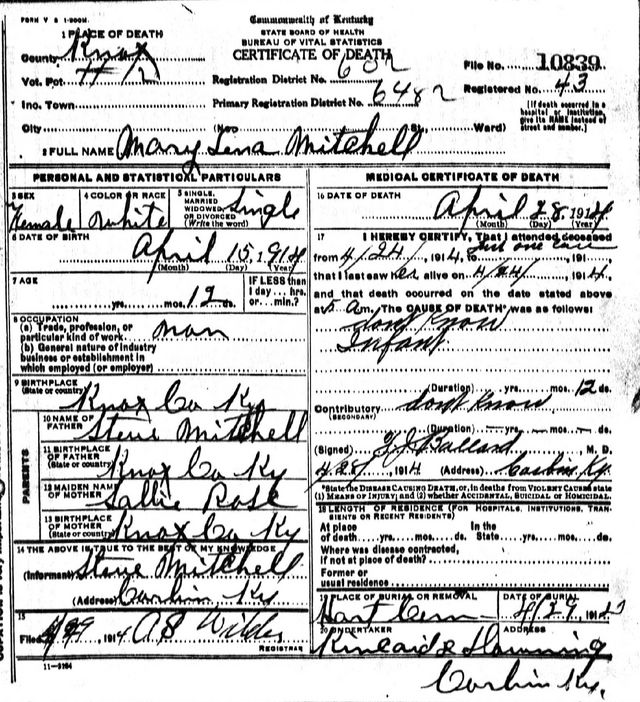 FORM V S 1-200M.
Commonwealth of Kentucky
STATE BOARD OF HEALTH
BUREAU OF VITAL STATISTICS
CERTIFICATE OF DEATH
1 PLACE OF DEATH
County Knox
Vot. Pct
Inc. Town
City (No St. Ward)
Registration District No. 602
Primary Registration District No. 6482
File No. 10839
Registered No. 43
(If death occurred in a hospital or institution, give its NAME instead of street and number.)
2 FULL NAME Mary Lena Mitchell
PERSONAL AND STATISTICAL PARTICULARS
3 SEX
Female
4 COLOR OR RACE
White
5 SINGLE, MARRIED WIDOWED OR DIVORCED (Write the word) Single
6 DATE OF BIRTH
April 15, 1914
(Month) (Day) (Year)
7 AGE
yrs. mos. 12 ds.
IF LESS than 1 day... hrs. or... min.?
8 OCCUPATION
(a) Trade, profession, or particular kind of work
(b) General nature of industry
business or establishment in
which employed (or employer)
9 BIRTHPLACE
(State or country) Knox Co Ky
PARENTS
10 NAME OF FATHER Steve Mitchell
11 BIRTHPLACE OF FATHER (State or country) Knox Co Ky
12 MAIDEN NAME OF MOTHER Sallie Rose
13 BIRTHPLACE OF MOTHER (State or country) Knox Co Ky
14 THE ABOVE IS TRUE TO THE BEST OF MY KNOWLEDGE
(Informant) Steve Mitchell
(Address) Corbin Ky
15
Filed 4/29, 1914 A S Wilder
REGISTRAR
11-3184
MEDICAL CERTIFICATE OF DEATH
16 DATE OF DEATH
April 28, 1914
(Month) (Day) (Year)
17 I HEREBY CERTIFY, That I attended deceased
from 4/24, 1914, to Just one call, 191
that I last saw her alive on 4/24, 1914,
and that death occurred on the date stated above
at 5 am. The CAUSE OF DEATH* was as follows:
dont Know
Infant
(Duration) yrs. mos. 12 ds.
Contributory dont Know
(SECONDARY)
(Duration) yrs. mos. ds.
(Signed) Ballard, M. D.
4/28, 1914 (Address) Corbin Ky.
*State the DISEASE CAUSING DEATH, or, in deaths from VIOLENT CAUSES state
(1) MEANS OF INJURY; and (2) whether ACCIDENTAL, SUICIDAL or HOMICIDAL.
18 LENGTH OF RESIDENCE (FOR HOSPITALS, INSTITUTIONS, TRANSIENTS OR RECENT RESIDENTS)
At place of death yrs. mos. ds. In the State yrs. mos. ds.
Where was disease contracted,
if not at place of death?
Former or
usual residence
19 PLACE OF BURIAL OR REMOVAL
Hart Cem
DATE OF BURIAL
4/29, 191
20 UNDERTAKER
ADDRESS
Kincaid &
Corbin Ky.